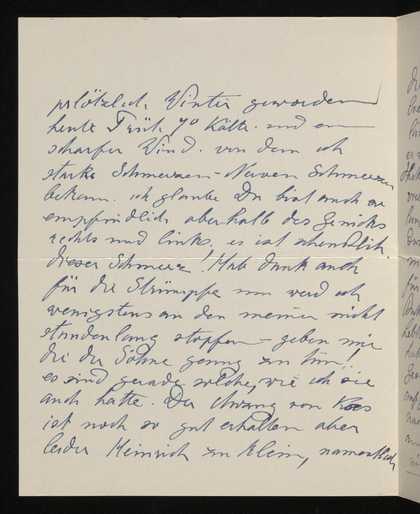 plötzlich Winter geworden
heute Früh 7° Kälte. und ein
scharfer Wind. von dem ich
starke Schmerzen-Nerven Schmerzen
bekam. ich glaube Du bist auch so
empfindlich oberhalb des Genicks
rechts und links. es ist scheußlich
dieser Schmerz! Hab dank auch
für die Strümpfe nun werd ich
wenigstens an den meinen nicht
stundenlang stopfen – geben mir
die der Söhne genug zu tun!
es sind gerade solche, wie ich sie
auch hatte. Der von
ist noch so gut erhalten aber
leider Heinrich zu klein, namentlich